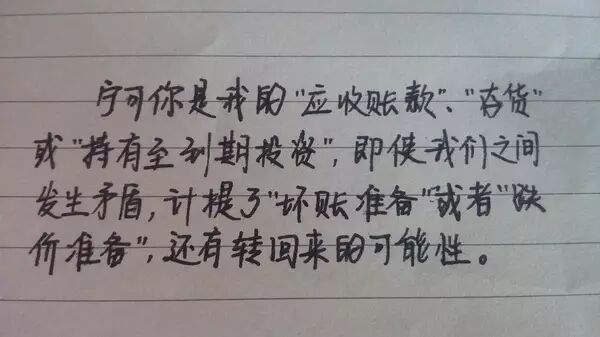 宁可你是我的"应收账款"、"存货"
或"持有至到期投资",即使我们之间
发生矛盾,计提了"坏账准备"或者"跌
价准备",还有转回来的可能性。